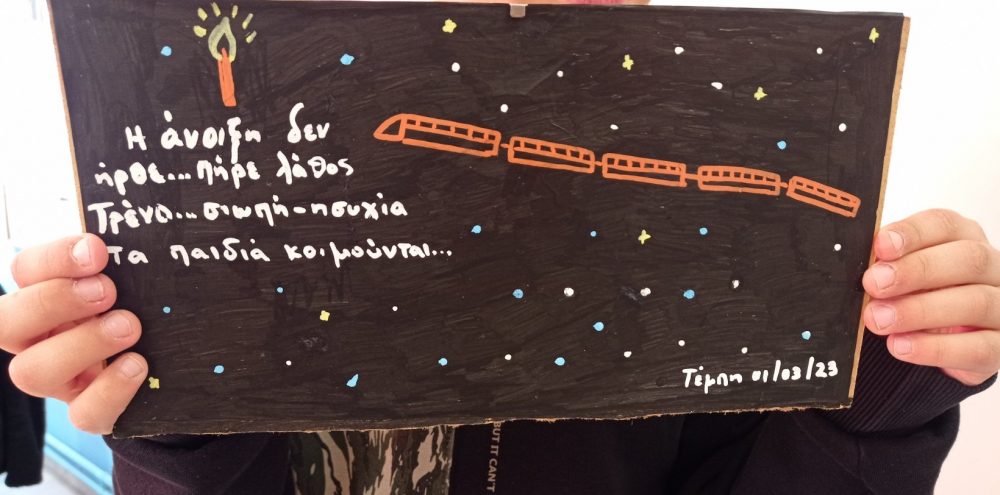 Η άνοιξη δεν
ήρθε...πήρε λάθος
Τρένο...σιωπή-ησυχία
Τα παιδιά κοιμούνται...
Τέμπη 01/03/23
BUT IT CAN'T